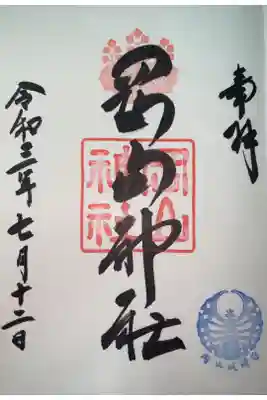 奉拝
岡山神社
岡山
神社
令和三年七月十二日